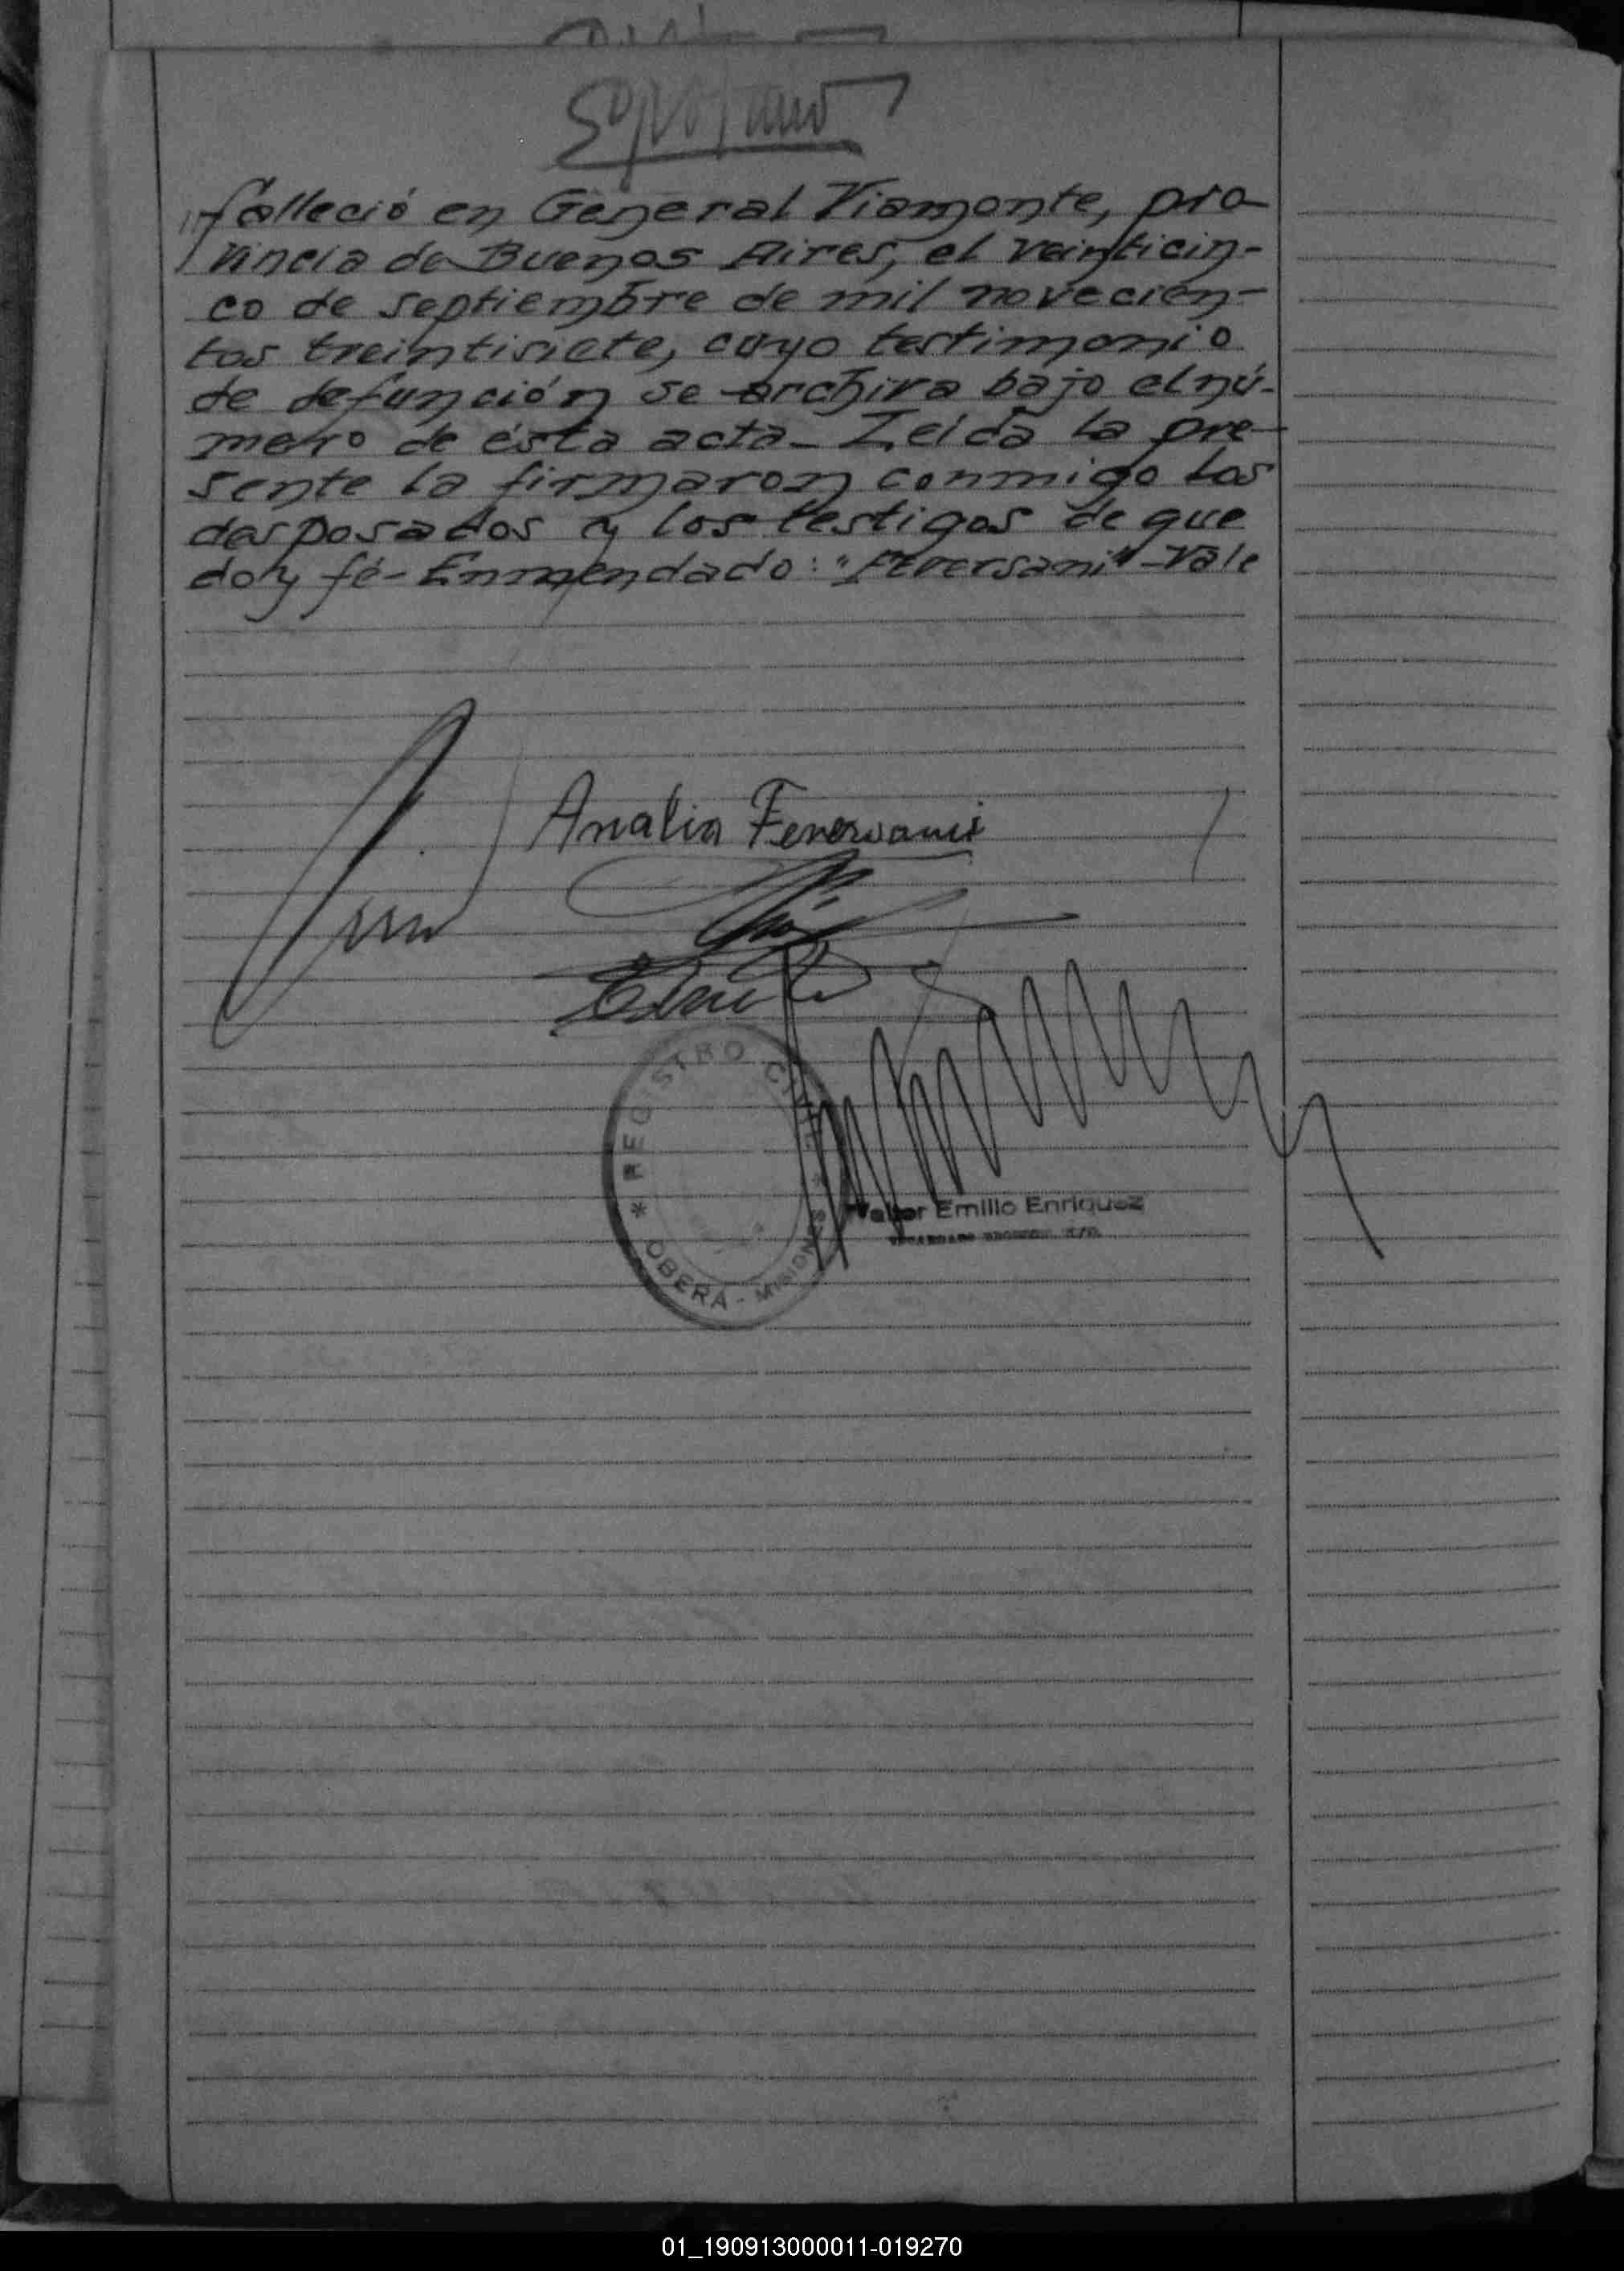 falleció en General Viamonte, pro-
vincia de Buenos Aires, el veinticin-
co de septiembre de mil novecien-
tos treintisiete, cuyo testimonio
de defunción se archiva bajo el nú-
mero de ésta acta- Leída la pre-
sente la firmaron conmigo los
desposados y los testigos de que
doy fé- Enmendado: "Feversani" - Vale
Analia Feversani
REGISTRO CIVIL
* OBERA - MISIONES *
Walter Emilio Enriquez
01_190913000011-019270